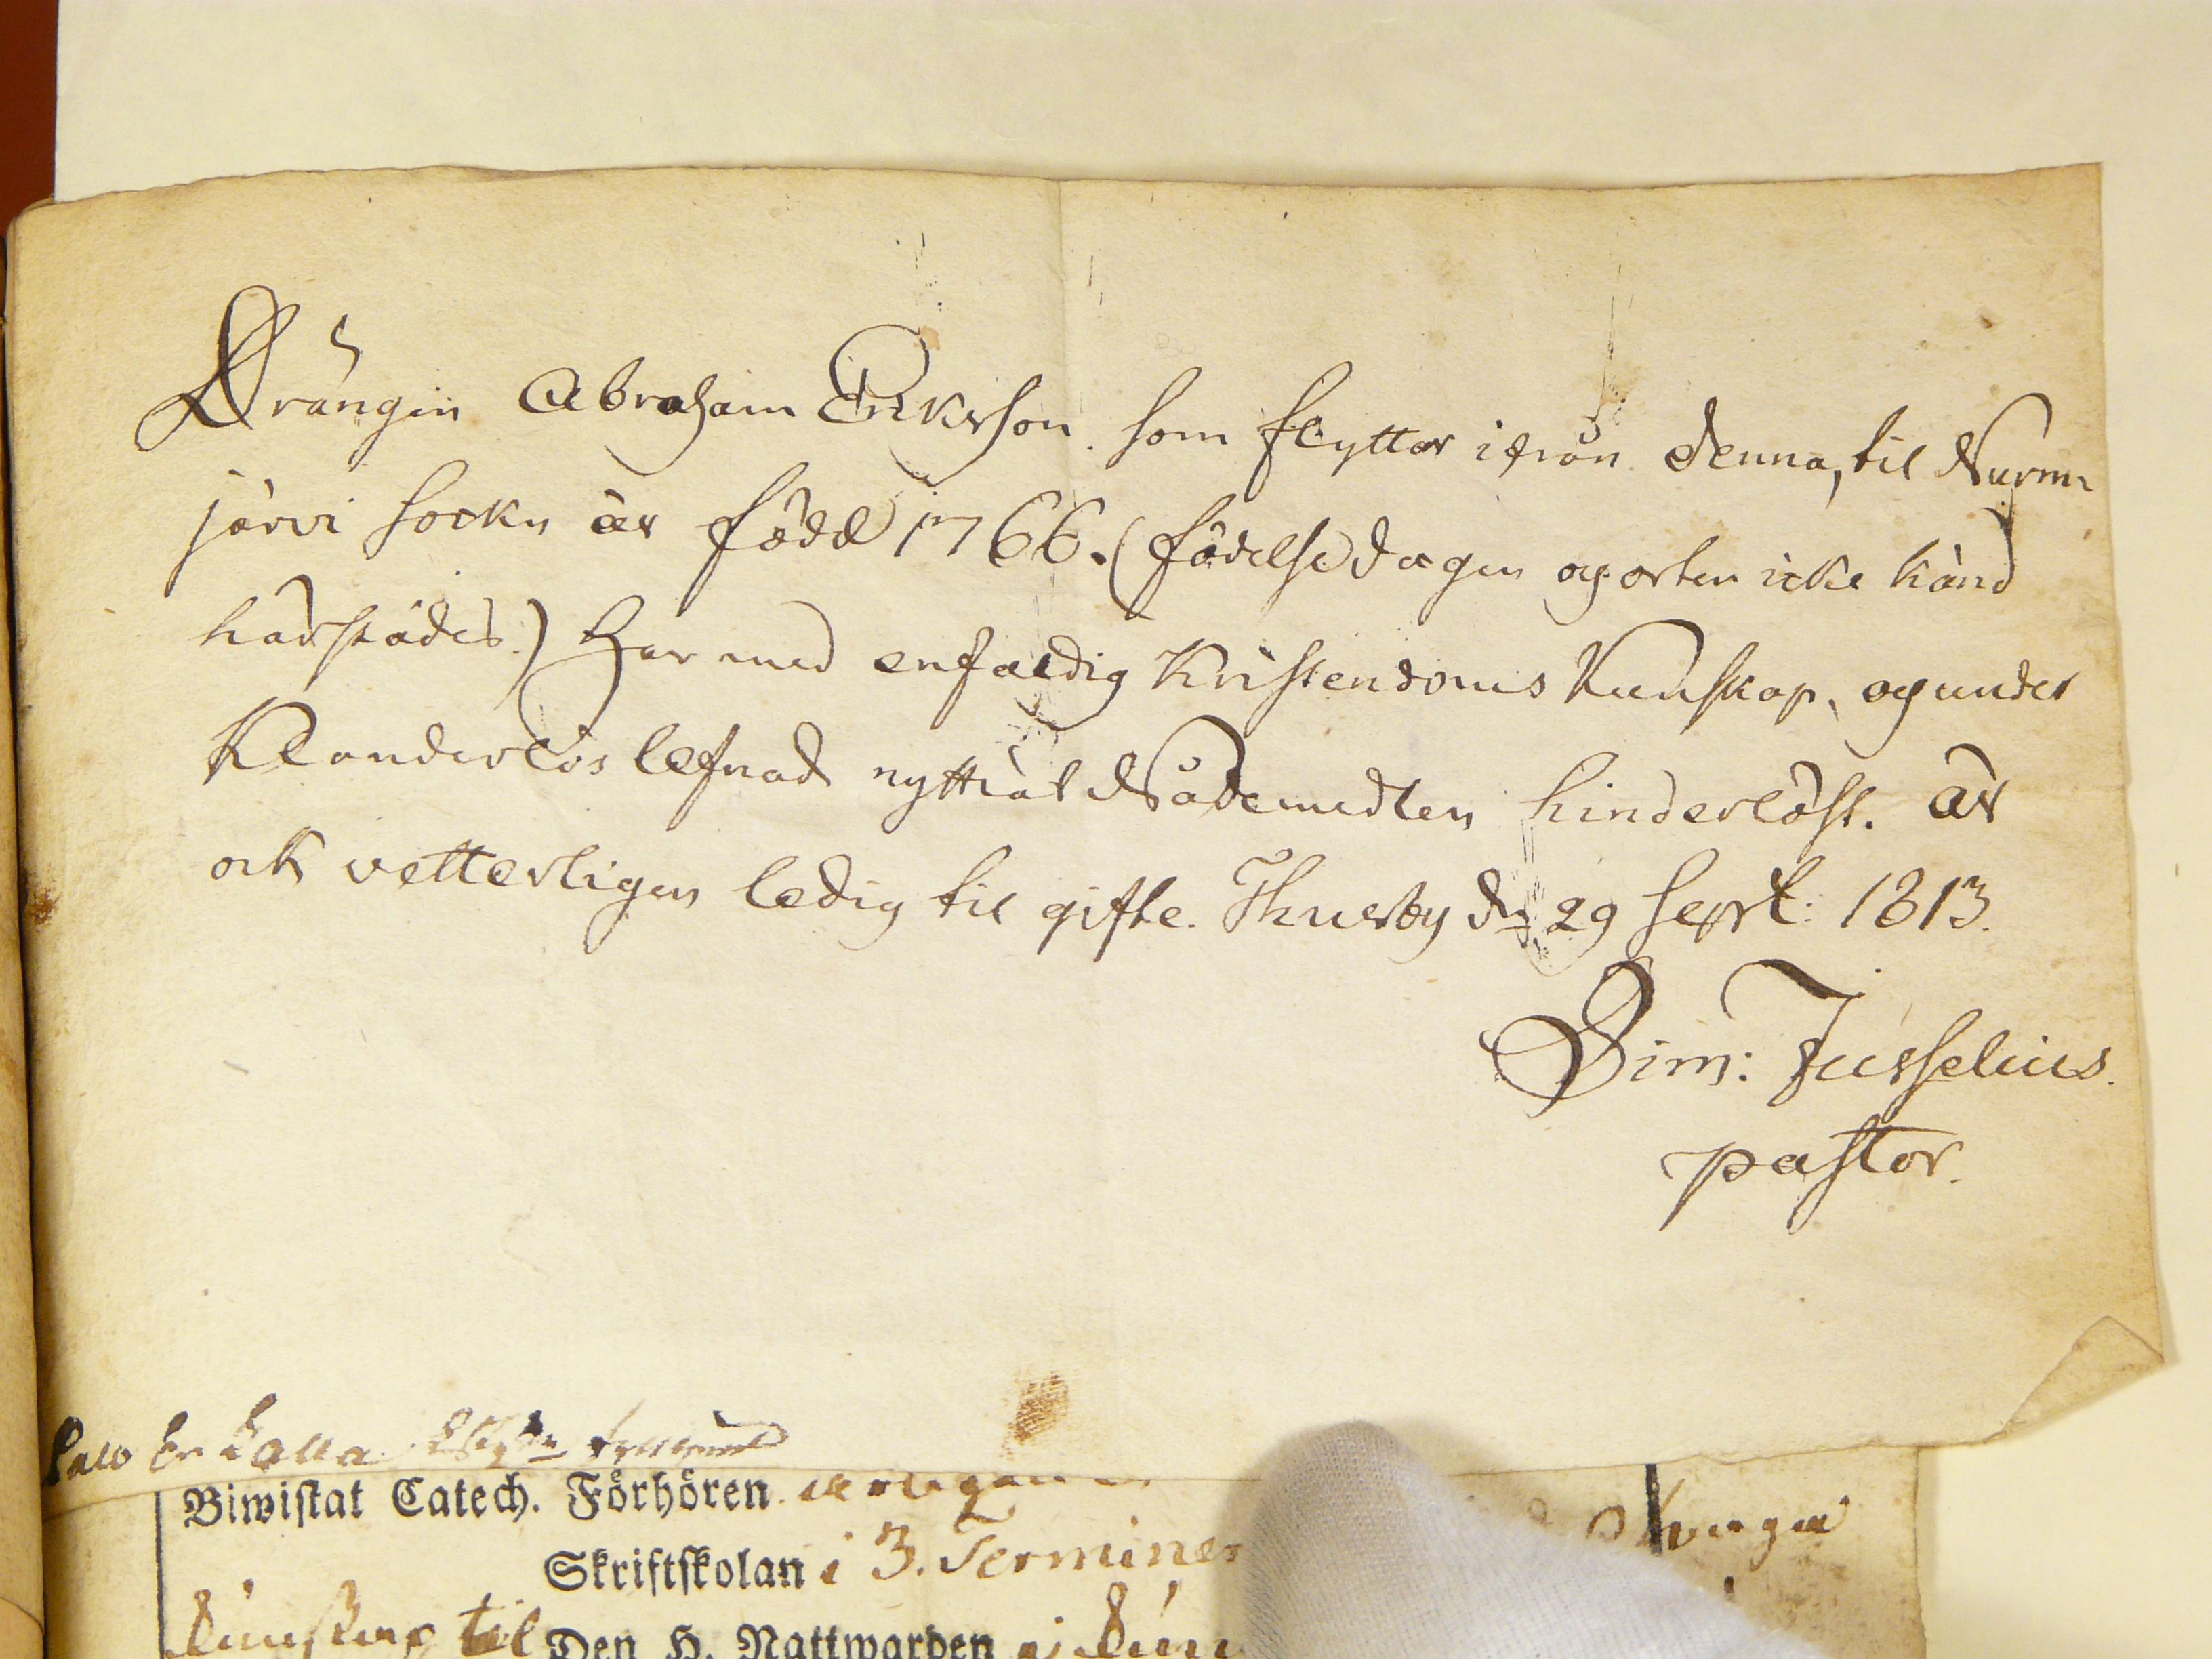 Drängen Abraham Erikssson som flyttar ifrån denna, til Nurmi
järvi Sockn är född 1766. (födelse dagen og orten icke känd
härstädes.) Har med enfaldig Kristendoms Kunskap, og under
Klanderlös lefnad nyttiat Nådemedlen hinderlöst. är
ock vetterligen ledig til gifte. Thusby dn 29 Sept: 1813.
Sim: Jusselius.
pastor.
Biwistat Catech. Förhören
Skriftskolan i 3. Terminer
kunskap til Den H. Nattwarden